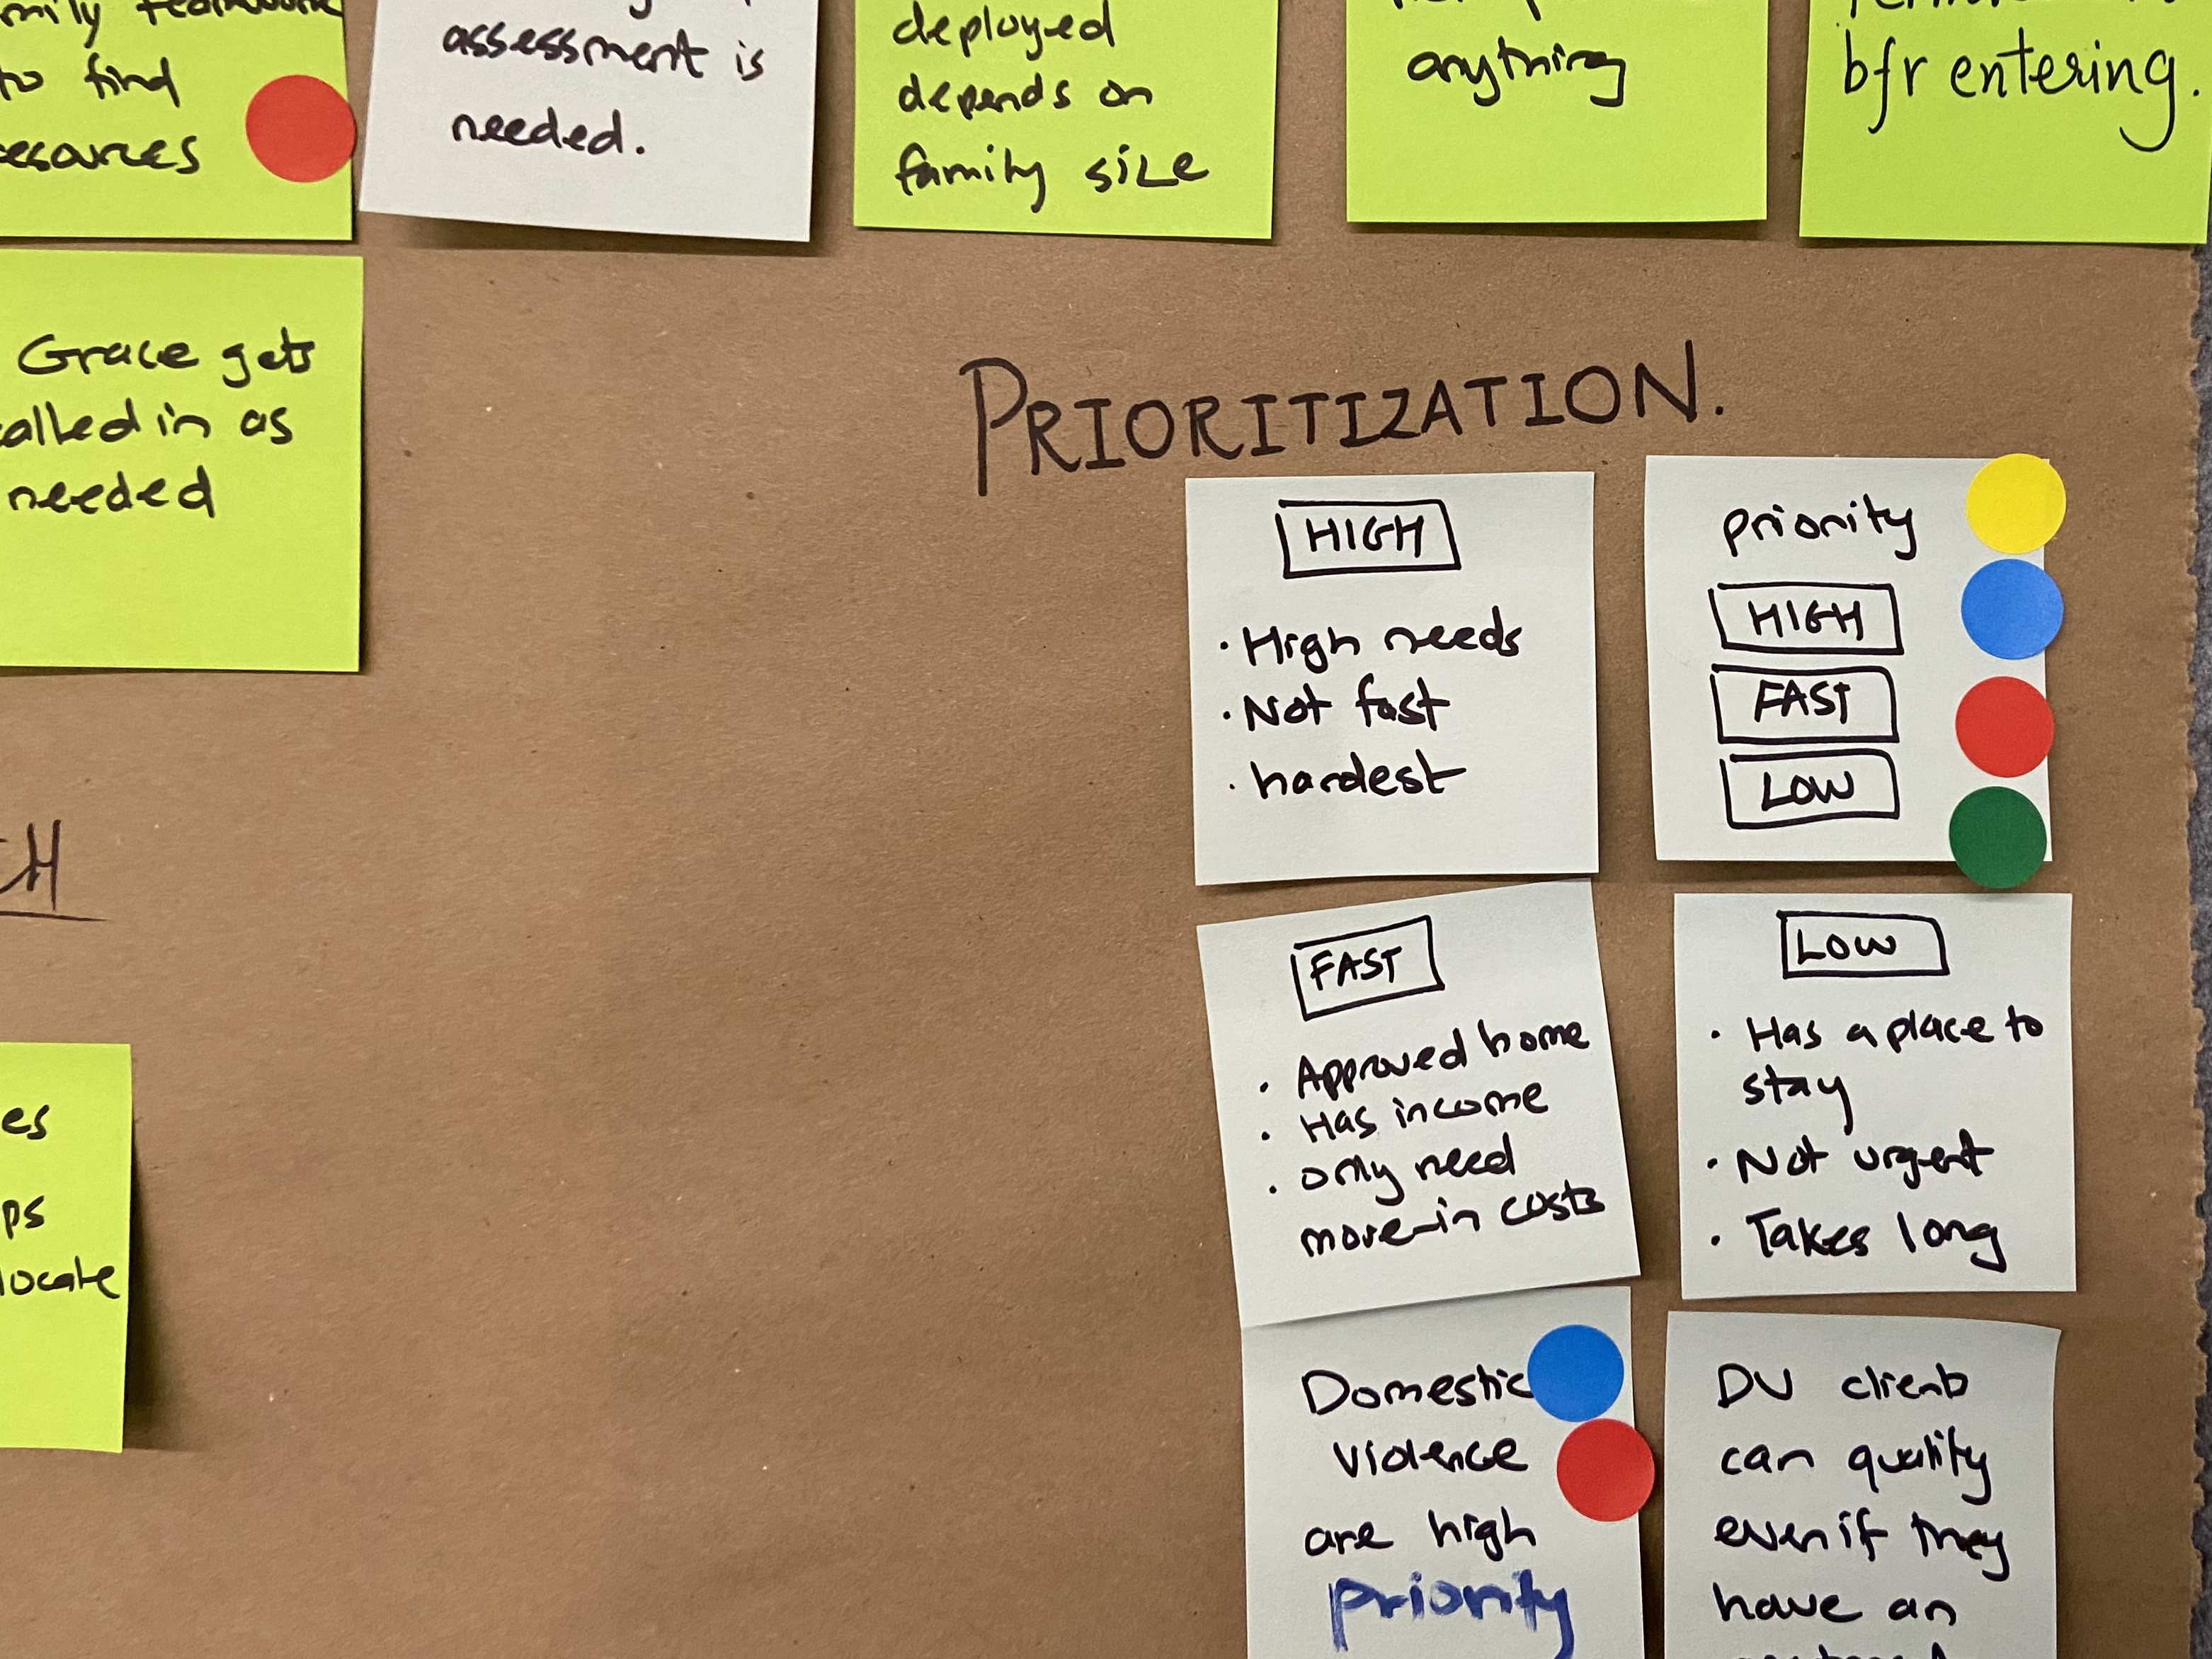 to find
assessment is
needed.
deployed
depends on
family size
anything
bfr entering.
Grace gets
called in as
needed
PRIORITIZATION.
HIGH
· High needs
· Not fast
· hardest
priority
HIGH
FAST
LOW
FAST
· Approved home
· Has income
· only need
move-in costs
LOW
· Has a place to
stay
· Not urgent
· Takes long
Domestic
violence
are high
priority
DV clients
can qualify
even if they
have an